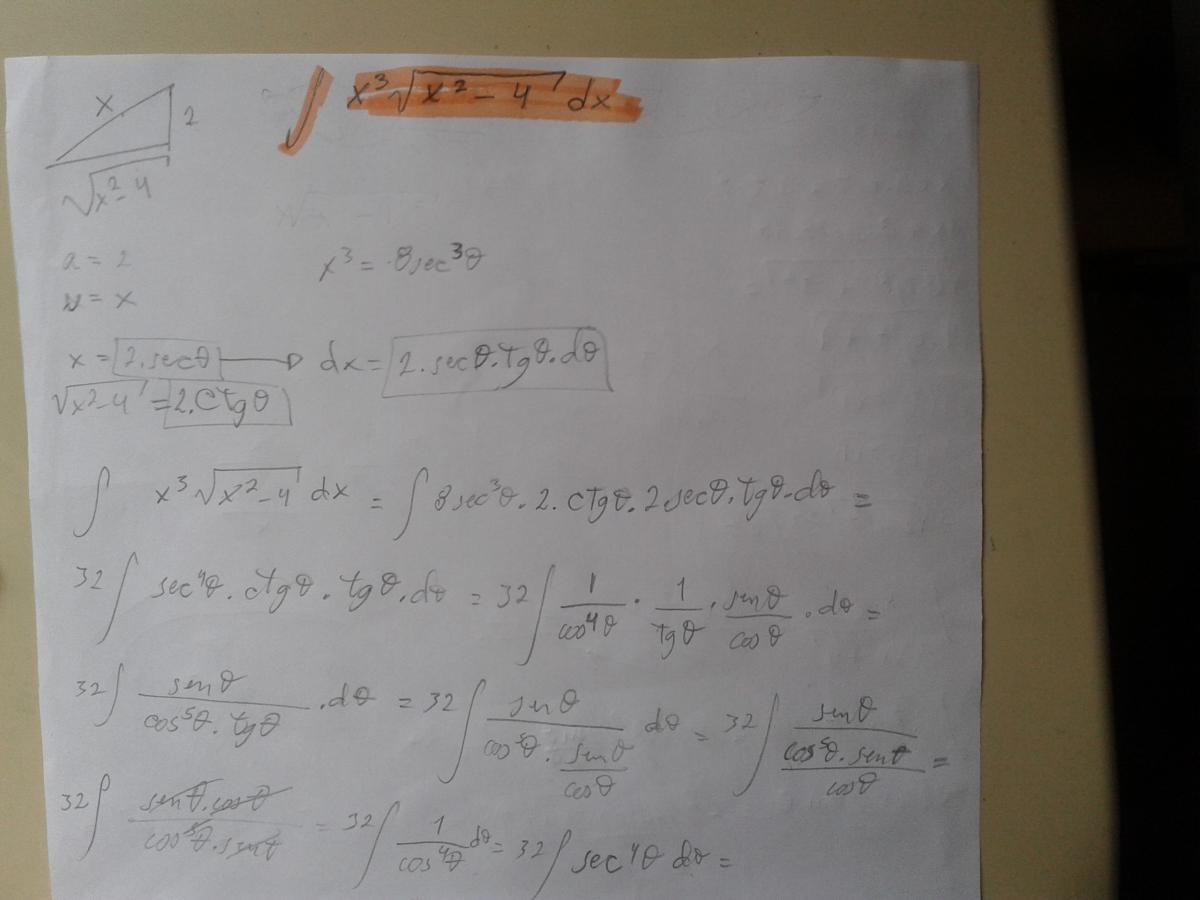 ∫ x³√(x² - 4) dx
x
2
√(x² - 4)
a = 2
x³ = 8sec³θ
u = x
x = 2.secθ → dx = 2.secθ.tgθ.dθ
√(x²-4) = 2.ctgθ
∫ x³√(x²-4) dx = ∫ 8sec³θ.2.ctgθ.2secθ.tgθ.dθ =
32∫ sec⁴θ.ctgθ.tgθ.dθ = 32∫ 1/cos⁴θ . 1/tgθ . senθ/cosθ .dθ =
32∫ senθ/(cos⁵θ.tgθ) .dθ = 32∫ senθ/(cos⁵θ.senθ/cosθ) dθ = 32∫ senθ/((cos⁵θ.senθ)/cosθ) =
32∫ (senθ.cosθ)/(cos⁵θ.senθ) = 32∫ 1/cos⁴θ dθ = 32∫ sec⁴θ dθ =